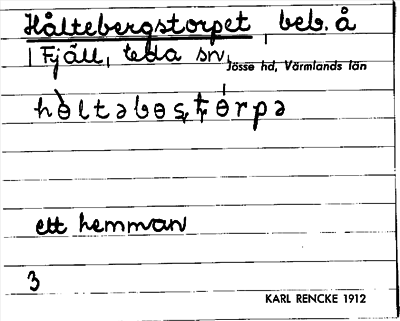 Håltebergstorpet, beb. å
Fjäll, Eda sn,
Jösse hd, Värmlands län
ett hemman
3
KARL RENCKE 1912